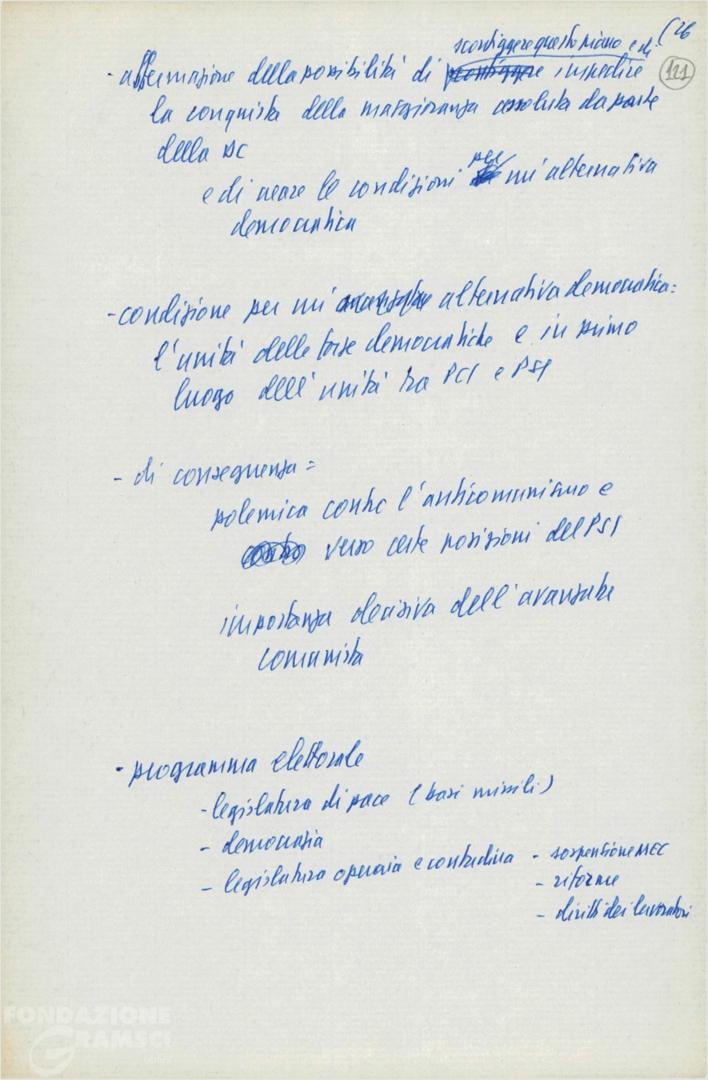 (26
121
scongiggere questo piano e di
- affermazione della possibilità di sconfiggere impedire
la conquista della maggioranza assoluta da parte
della DC
e di creare le condizioni per un'alternativa
democratica
- condizione per un' alternativa democratica:
l'unità delle forze democratiche e in primo
luogo dell'unità tra PCI e PSI
- di conseguenza =
polemica contro l'anticomunismo e
contro verso certe posizioni del PSI
importanza decisiva dell'avanzata
comunista
- programma elettorale
- legislatura di pace (basi missili)
- democrazia
- legislatura operaia e contadina - sospensione MEC
- riforme
- diritti dei lavoratori
FONDAZIONE
GRAMSCI